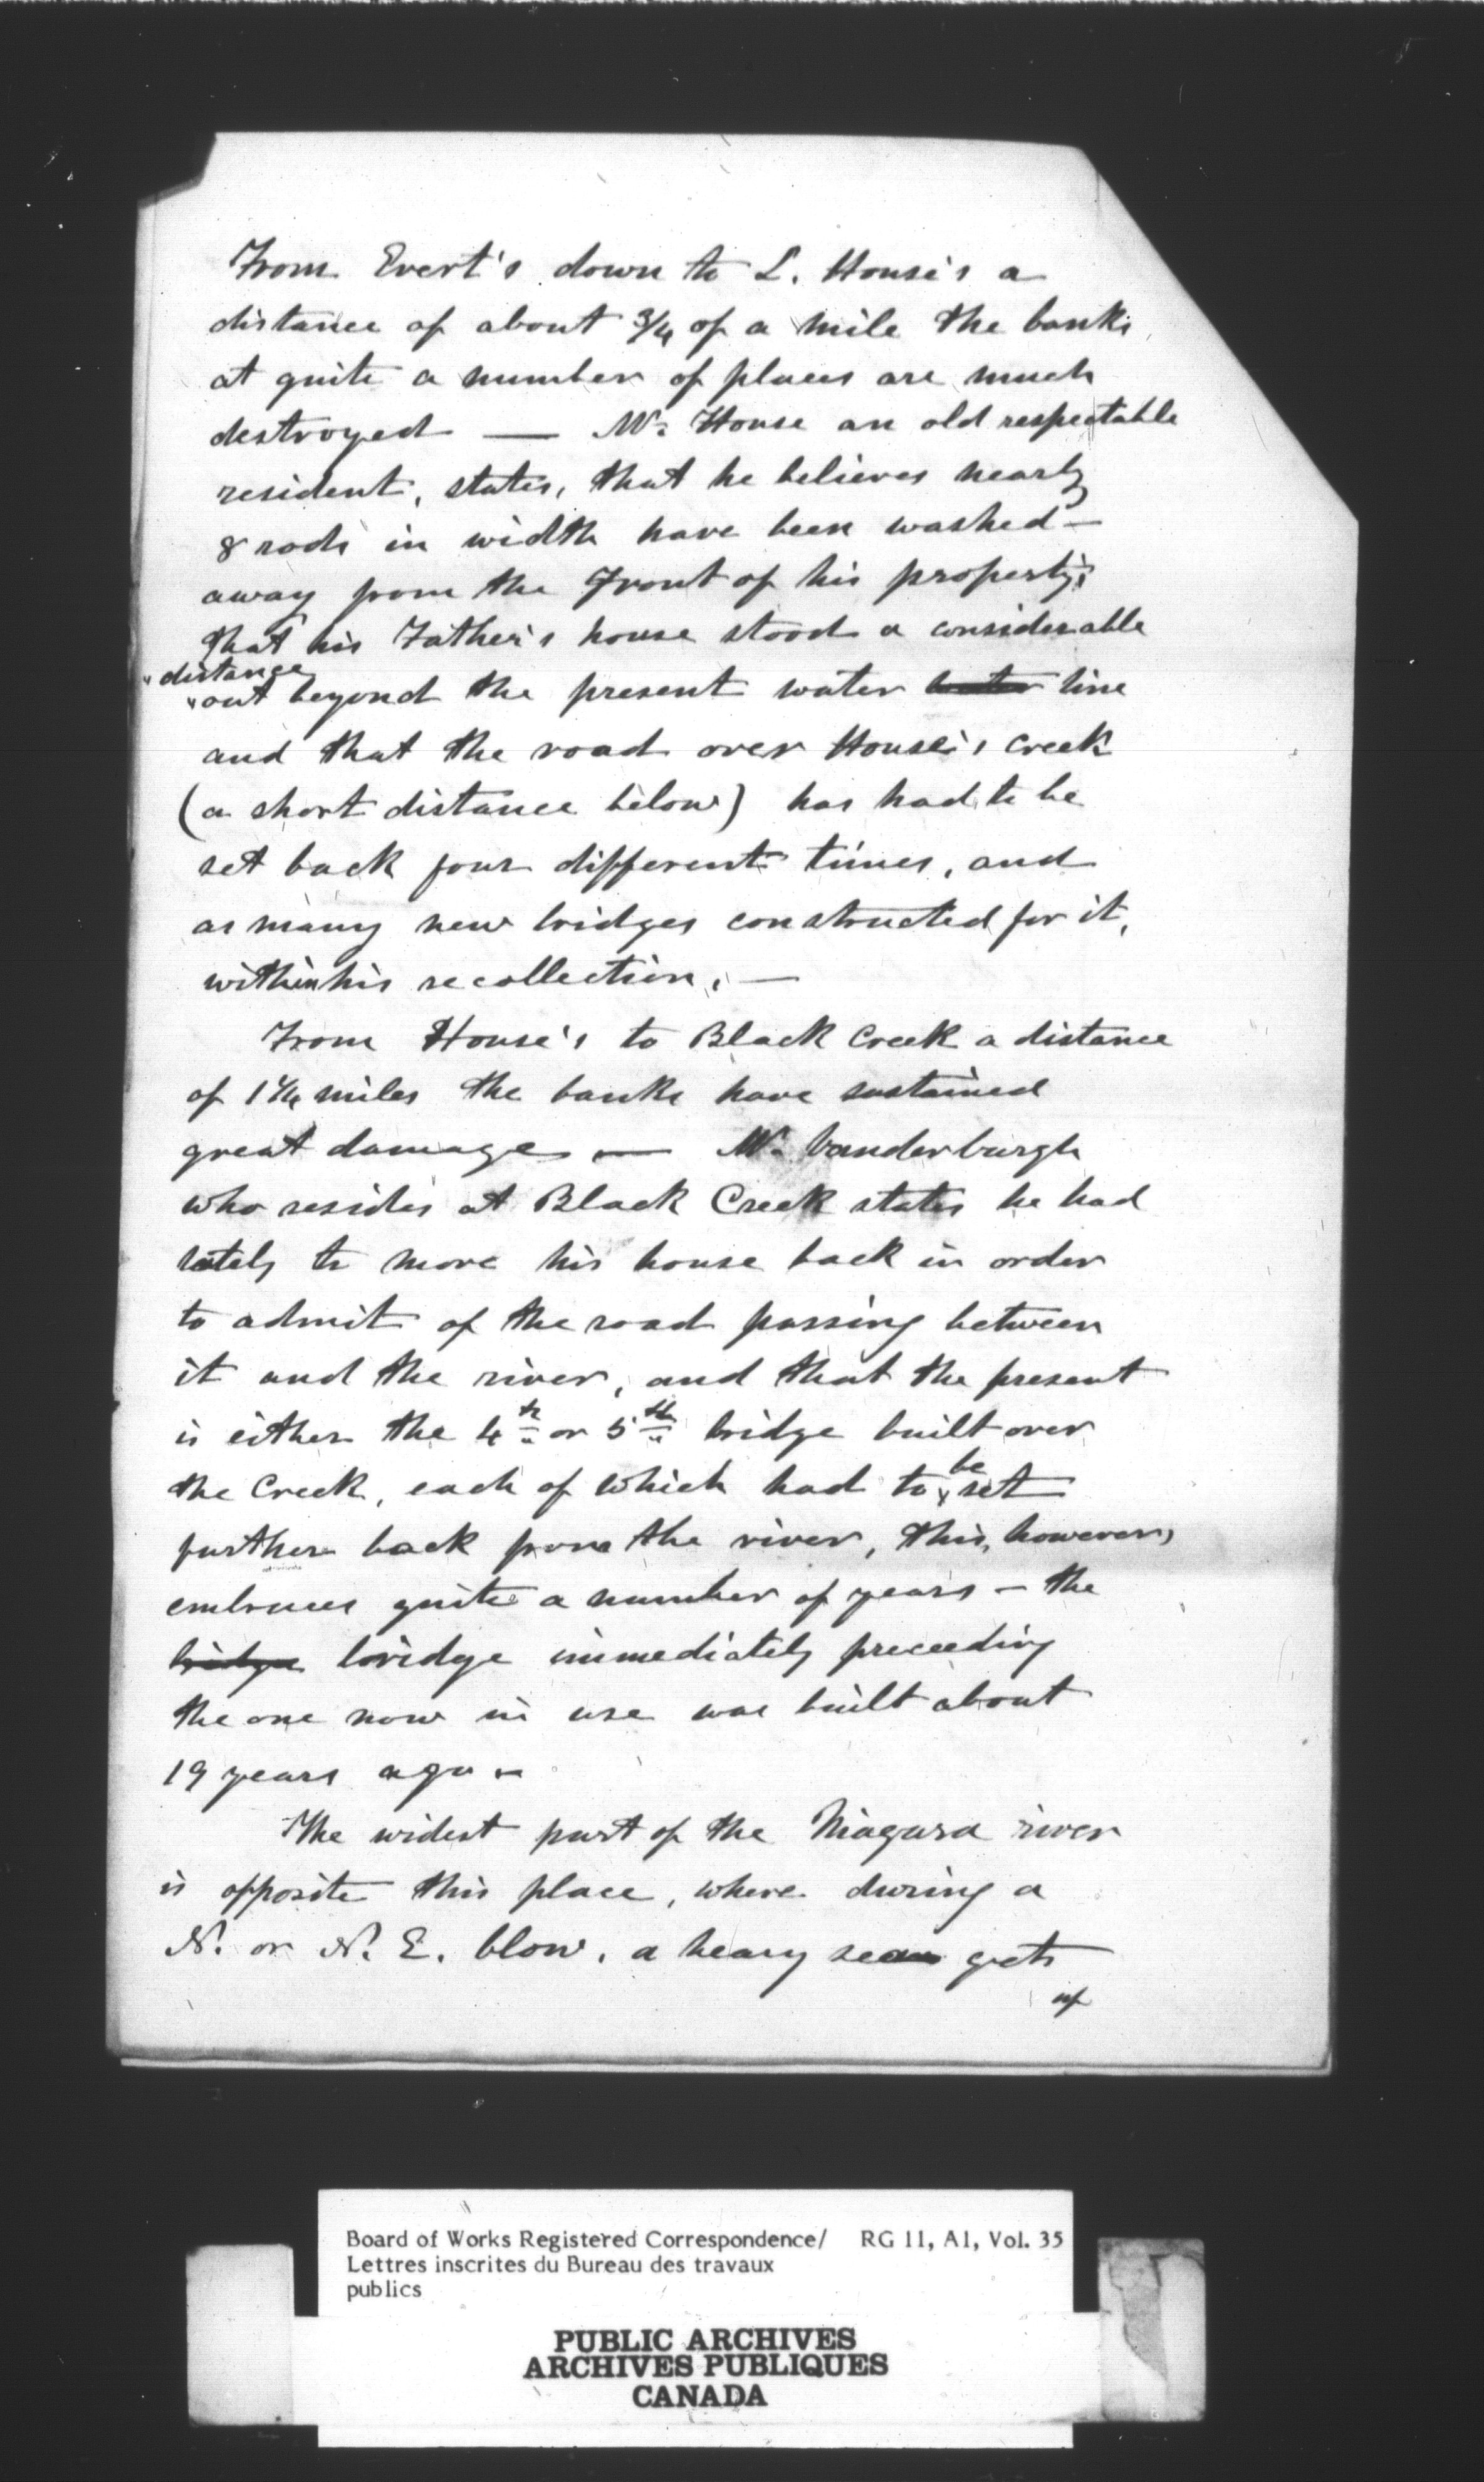 From Evert's down to L. House's a
distance of about 3/4 of a mile the banks
at quite a number of places are much
destroyed — Mr. House an old respectable
resident, states, that he believes nearly
8 rods in width have been washed —
away from the Front of his property;
that his Father's house stood a considerable
distance
out beyond the present water line
and that the road over House's creek
(a short distance below) has had to be
set back four different times, and
as many new bridges constructed for it,
within his recollection. —
From House's to Black Creek a distance
of 1 1/4 miles the banks have sustained
great damage — Mr. Vanderburgh
who resides at Black Creek states he had
lately to move his house back in order
to admit of the road passing between
it and the river, and that the present
is either the 4th or 5th bridge built over
the Creek, each of which had to be set
further back from the river, this, however,
embraces quite a number of years — the
bridge bridge immediately preceeding
the one now in use was built about
19 years ago —
The widest part of the Niagara river
is opposite this place, where during a
N. or N. E. blow, a heavy sea gets
up
Board of Works Registered Correspondence/ RG 11, A1, Vol. 35
Lettres inscrites du Bureau des travaux
publics
PUBLIC ARCHIVES
ARCHIVES PUBLIQUES
CANADA